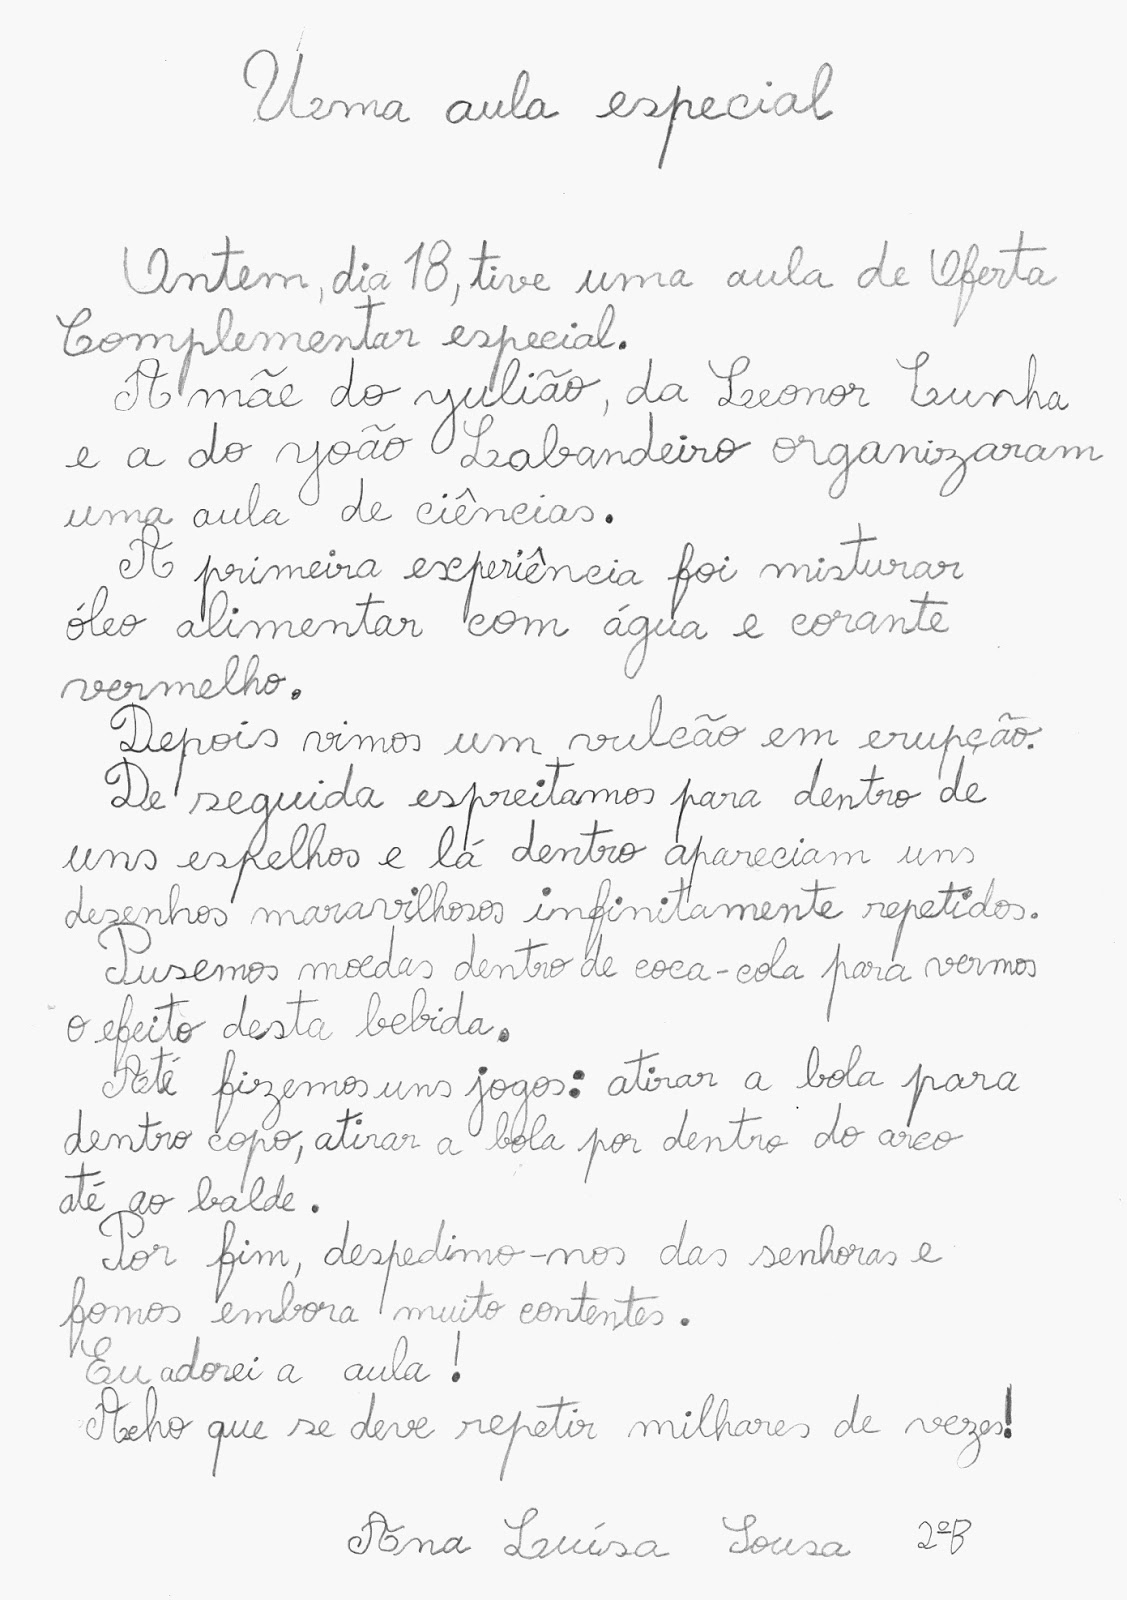 Uma aula especial
Ontem, dia 18, tive uma aula de Oferta
Complementar especial.
A mãe do Julião, da Leonor Cunha
e a do João Labandeiro organizaram
uma aula de ciências.
A primeira experiência foi misturar
óleo alimentar com água e corante
vermelho.
Depois vimos um vulcão em erupção.
De seguida espreitamos para dentro de
uns espelhos e lá dentro apareciam uns
dezenhos maravilhosos infinitamente repetidos.
Pusemos moedas dentro de coca-cola para vermos
o efeito desta bebida.
Até fizemos uns jogos: atirar a bola para
dentro copo, atirar a bola por dentro do arco
até ao balde.
Por fim, despedimo-nos das senhoras e
fomos embora muito contentes.
Eu adorei a aula!
Acho que se deve repetir milhares de vezes!
Ana Luísa Sousa 2ºB